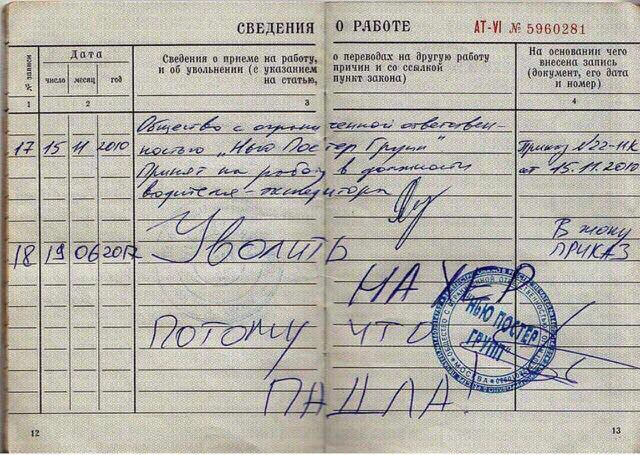 СВЕДЕНИЯ О РАБОТЕ АТ-VI № 5960281
№ записи
Дата
число месяц год
Сведения о приеме на работу, о переводах на другую работу
и об увольнении (с указанием причин и со ссылкой
на статью, пункт закона)
На основании чего
внесена запись
(документ, его дата
и номер)
1 2 3 4
Общество с ограниченной ответствен-
17 15 11 2010 ностью „Нью Постер Групп" Приказ N22-ПК
Принят на работу в должности от 15.11.2010
водителя-экспедитора
18 19 06 2012 Уволить В жопу
ПРИКАЗ
НАХЕР
ПОТОМУ ЧТО
ПАДЛА!
НЬЮ ПОСТЕР
ГРУПП
МОСКВА
12 13